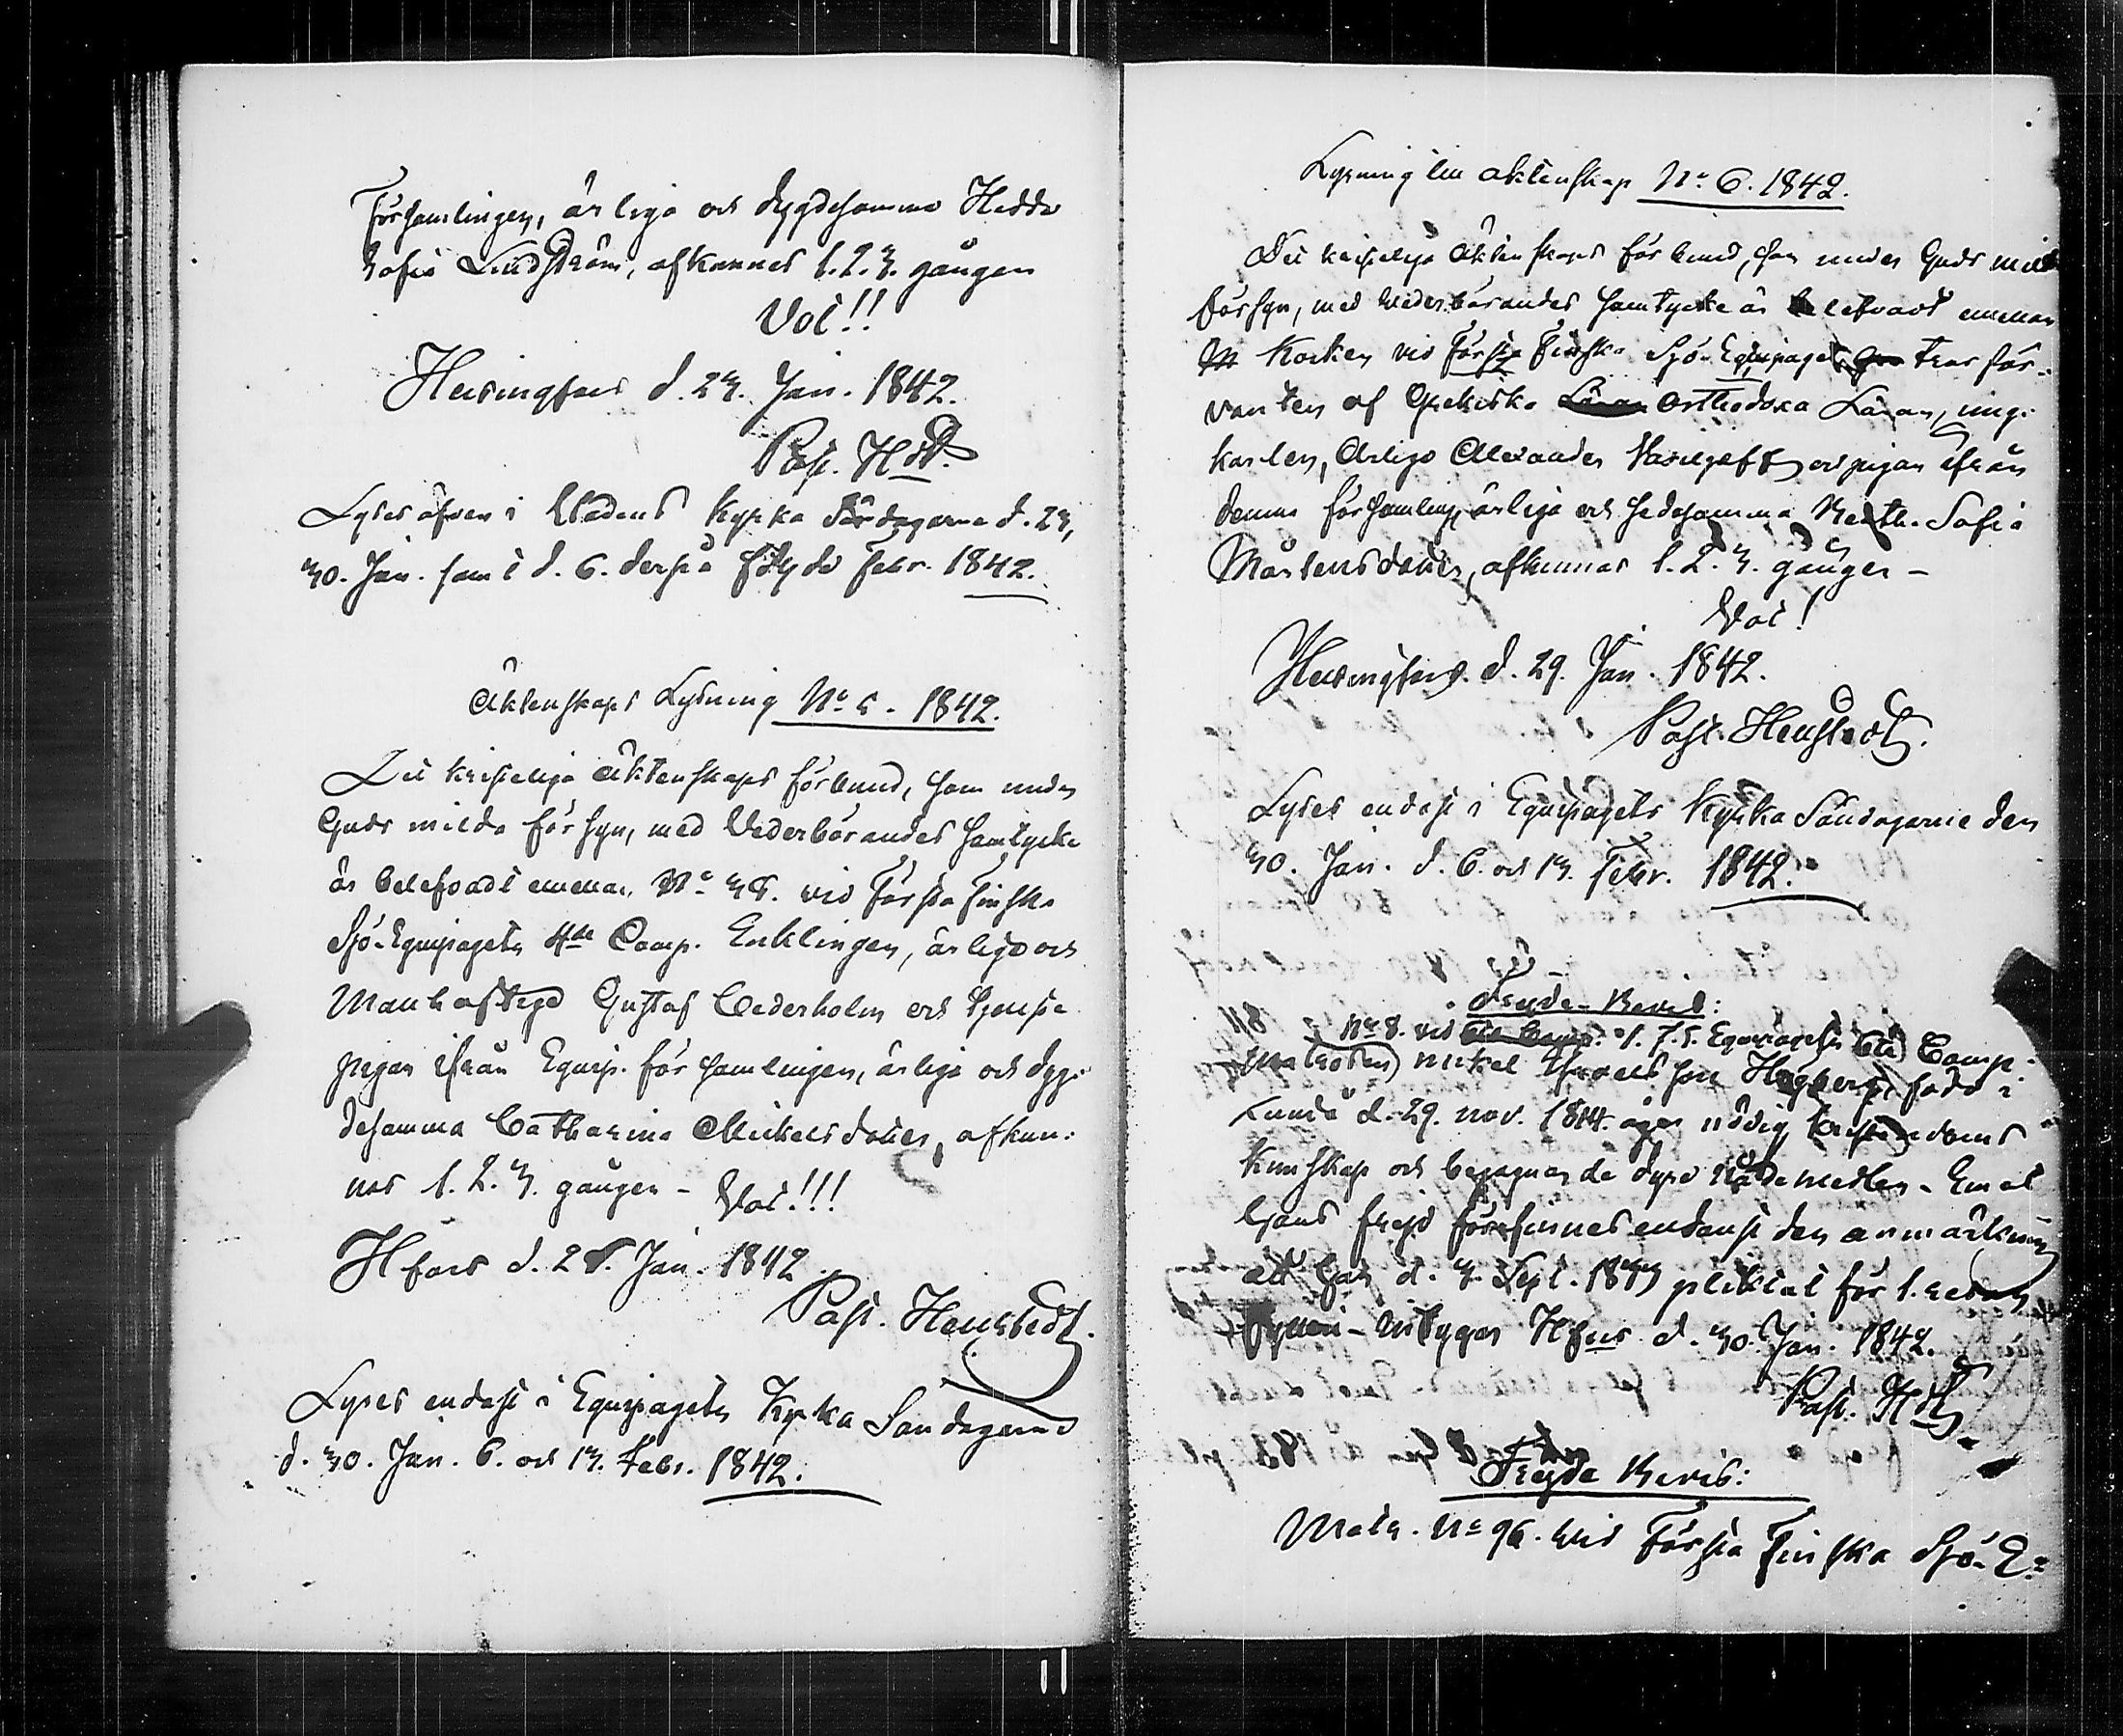 Församlingen, ärliga och dygdesamma Hedda
Sofia Lindström, afkunnas 1. 2. 3. gången
Vot!!
Helsingfors d. 23. Jan. 1842.
Past. Hdt.
Lyses äfven i Stadens Kyrka Söndagarne d. 23,
30. Jan. samt d. 6. derpå följde Febr. 1842.
Äktenskaps Lysning No 5. 1842.
Det kristeliga Äktenskaps förbund, som under
Guds milda försyn, med Vederbörandes samtycke
är belefvadt emellan No 35. vid Första Finska
Sjö-Equipagets 4de Comp. Enklingen, ärlige och
Manhaftige Gustaf Cederholm och tjenste
pigan ifrån Equip. församlingen, ärliga och dyg-
desamma Catharina Mickelsdotter, afkun-
nas 1. 2. 3. gången – Vot!!!
Hfors d. 25. Jan. 1842
Past. Henstedt.
Lyses endast i Equipagets Kyrka Söndagarne
d. 30. Jan. 6. och 13. Febr. 1842.
Lysning till äktenskap No 6. 1842.
Det kristeliga Äktenskaps förbund, som under Guds milda
försyn, med Vederbörandes samtycke är belefvadt emellan
Kocken vid Första Finska Sjö-Equipaget, trosför-
vanten af Grekiska Orthodoxa Läran, ung-
karlen, Ärlige Alexander Vasiljeff och pigan ifrån
denna församling, ärliga och sedesamma Sofia
Mårtensdotter, afkunnas 1. 2. 3. gången –
Vot!
Helsingfors d. 29. Jan. 1842.
Past. Henstedt.
Lyses endast i Equipagets Kyrka Söndagarne den
30. Jan. d. 6. och 13. Febr. 1842.
Frejde-Bevis:
No 8. vid 1. F. S. Equipagets 6te Comp.
Matrosen Mickel Högberg född i
d. 29. nov. 1814. äger nödig kristendoms
Kunskap och begagnar de dyra Nådemedlen. Emot
hans frejd förefinnes endast den anmärkning
att han d. 3. Sept. pliktat för 1. resan
– intygar Hfors d. 30. Jan. 1842.
Past. Hdt.
Frejde Bevis:
Matr. No 96. vid Första Finska Sjö-E-